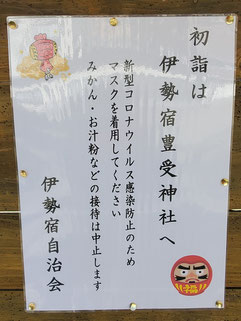 初詣は
伊勢宿豊受神社へ
新型コロナウイルス感染防止のため
マスクを着用してください
みかん・お汁粉などの接待は中止します
伊勢宿自治会